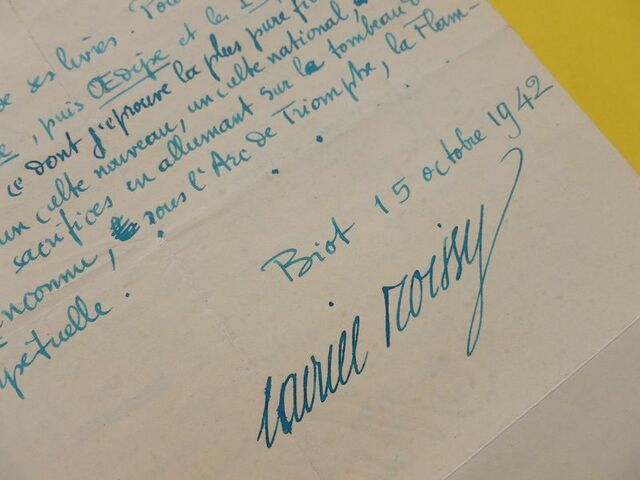 de ses livres. Tou
, puis Œdipe et le
ce dont j'éprouve la plus pure fi
un culte nouveau, un culte national,
sacrifices en allumant sur le tombeau d
nconnu, sous l'Arc de Triomphe, la Flam-
pétuelle.
Biot 15 octobre 1942
Gabriel Boissy